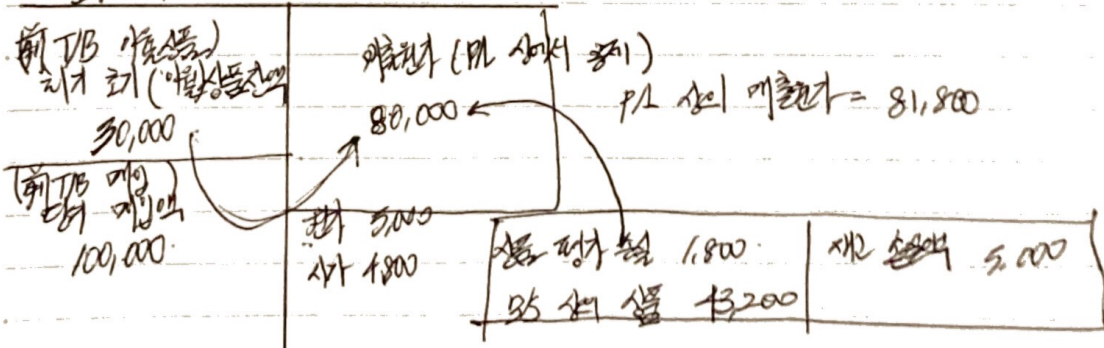 前 T/B 이월상품)
차기 초기 (이월상품잔액
30,000
(前 T/B 매입)
당기 매입액
100,000
매출원가 (P/L 상에서 공제)
80,000
P/L 상의 매출원가 = 81,800
원가 5,000
시가 4,800
상품 평가 손실 1,800
B/S 상의 상품 43,200
재고 손실액 5,000